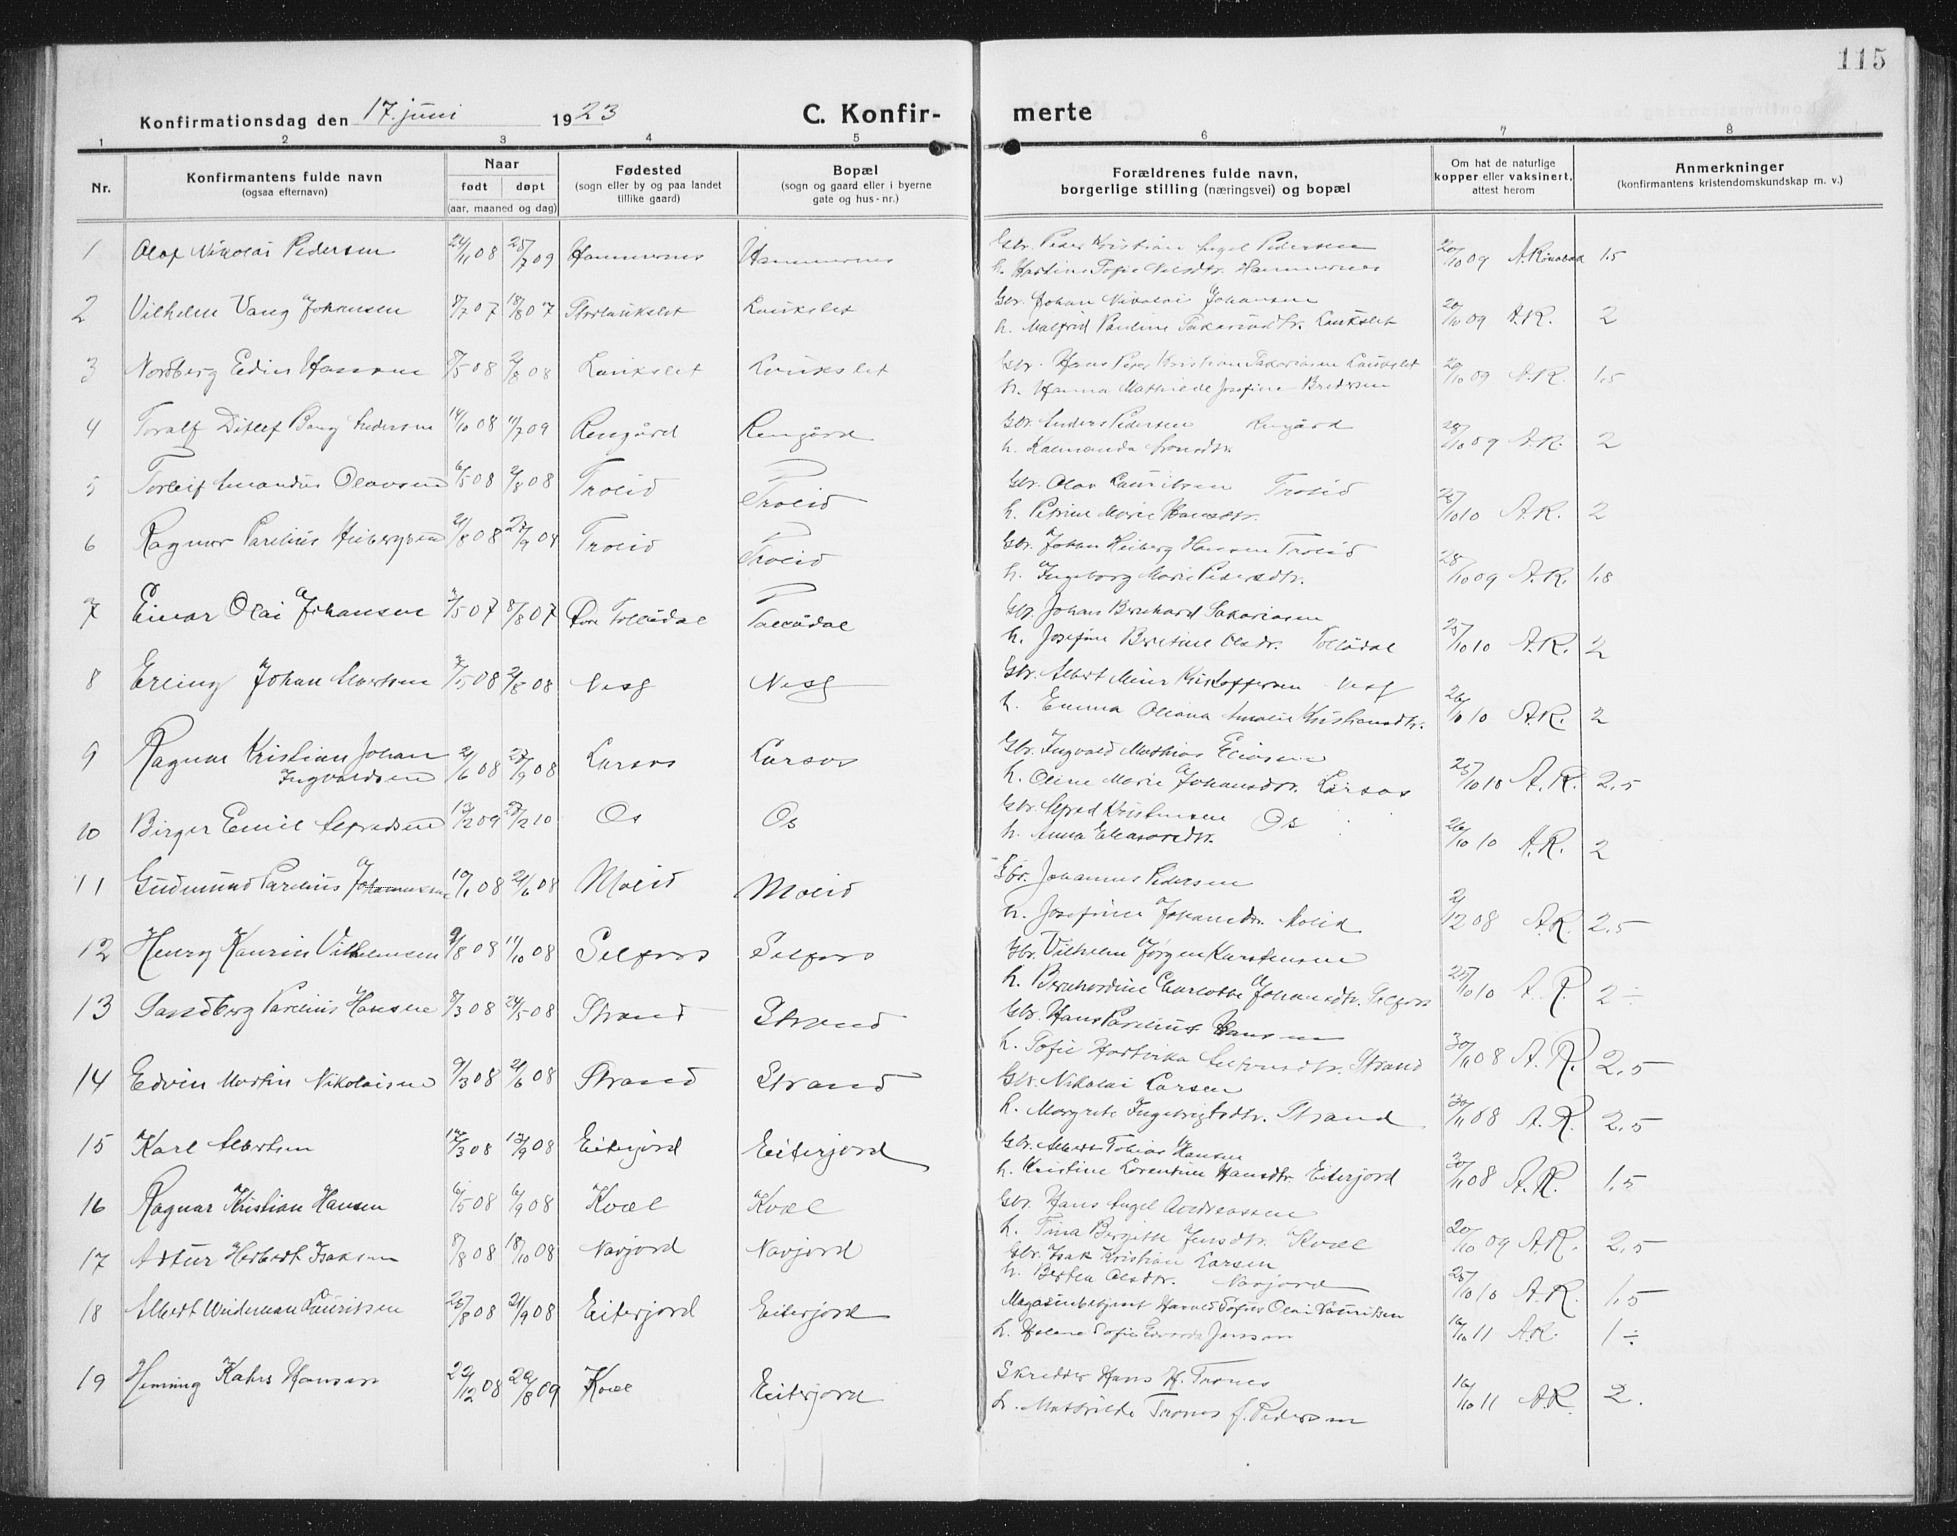 115
Konfirmationsdag den 17. juni 1923 C. Konfir- merte
1 2 3 4 5 6 7 8
Nr. Konfirmantens fulde navn (ogsaa efternavn) Naar født døpt (aar, maaned og dag) Fødested (sogn eller by og paa landet tillike gaard) Bopæl (sogn og gaard eller i byerne gate og hus-nr.) Forældrenes fulde navn, borgerlige stilling (næringsvei) og bopæl Om hat de naturlige kopper eller vaksinert, attest herom Anmerkninger (konfirmantens kristendomskundskap m. v.)
1 Olaf Nikolai Pedersen 24/11 08 25/7 09 Hammernes Hammernes Gbr. Peder Kristian Pedersen
h. Sofie Nilsdtr. Hammernes 20/10 09 1.5
2 Vilhelm Vang Johansen 8/7 07 18/8 07 Laukslet Gbr. Johan Nikolai Johansen
h. Malfrid Pauline Laukslet 20/10 09 A.R. 2
3 Nordberg Edin Hansen 8/5 08 2/8 08 Laukslet Laukslet Gbr. Hans Peder Kristian Laukslet
h. Hanna Mathilde Josefine 20/10 09 A.R. 1,5
4 Toralf Ditlef Bang Andersen 14/10 08 11/7 09 Rengård Rengård Gbr. Anders Pedersen Rengård
h. Kalmanda 28/10 09 A.R. 2
5 Torleif Amandus Olavsen 6/5 08 2/8 08 Trolid Trolid Gbr. Olav Lauritsen Trolid
h. Petrine Marie Hansdtr. 25/10 10 A.R. 2
6 Ragnar Parelius Heibergsen 21/8 08 27/9 08 Trolid Trolid Gbr. Johan Heiberg Hansen Trolid
h. Ingeborg Marie Pedersdtr. 28/10 09 A.R. 1,8
7 Einar Olai Johansen 5 07 8/8 07 Tollådal Tollådal Gbr. Johan Bernhard Sakariasen
h. Josefine Olsdtr. Tollådal 25/10 10 A.R. 2
8 Erling Johan Albertsen 5 08 2/8 08 Nesg Nesg Gbr. Albert Meier Kristoffersen Nesg
h. Emma Oleana Amalie Kristiansdtr. 26/10 10 A.R. 2
9 Ragnar Kristian Johan
Ingvaldsen 21/6 08 27/9 08 Larsos Larsos Gbr. Ingvald Mathias Eliasen
h. Oline Marie Johansdtr. Larsos 25/10 10 A.R. 2,5
10 Birger Emil Alfredsen 12 09 2 10 Os Os Gbr. Alfred Kristensen Os
h. Anna 26/10 10 A.R. 2
11 Gudmund Parelius Johannessen 10/1 08 21/6 08 Molid Molid Gbr. Johannes Pedersen
h. Josefine Johansdtr. Molid 2/12 08 A.R. 2,5
12 Henry Kaurin Vilhelmsen 9/8 08 11/10 08 Selfors Selfors Gbr. Vilhelm Jørgen Karstensen
h. Bernhardine Charlotte Johansdtr. Selfors 25/10 10 A.R. 2 ÷
13 Sandberg Parelius Hansen 8/3 08 24/5 08 Strand Strand Gbr. Hans Parelius Hansen
h. Sofie Hartvika Strand 30/11 08 A.R. 2,5
14 Edvin Martin Nikolaisen 9/3 08 21/6 08 Strand Strand Gbr. Nikolai Larsen
h. Margrete Ingebrigtsdtr. Strand 30/11 08 A.R. 2,5
15 Karl Albertsen 3 08 13/9 08 Eiterjord Eiterjord Gbr. Albert Tobias Hansen
h. Kristine Lorentine Hansdtr. Eiterjord 30/11 08 A.R. 1,5
16 Ragnar Kristian Hansen 6/5 08 6/9 08 Kvæl Kvæl Gbr. Hans Angel Andreassen
h. Tina Bergitte Jensdtr. Kvæl 20/10 09 A.R. 2,5
17 Artur Herbert Isaksen 8/8 08 18/10 08 Navjord Navjord Gbr. Isak Kristian Larsen
h. Bertea Olsdtr. Navjord 25/10 10 A.R. 1,5
18 Albert Weideman Lauritsen 25/8 08 21/9 08 Eiterjord Eiterjord Magasinbetjent Harald Olai Lauritsen
h. Helene Sofie Jensen 16/10 11 A.R. 1 ÷
19 Henning Kahrs Hansen 22/12 08 22/8 09 Kvæl Eiterjord Skredder Hans H. Trones
h. Mathilde Trones f. Pedersen 16/10 11 A.R. 2.